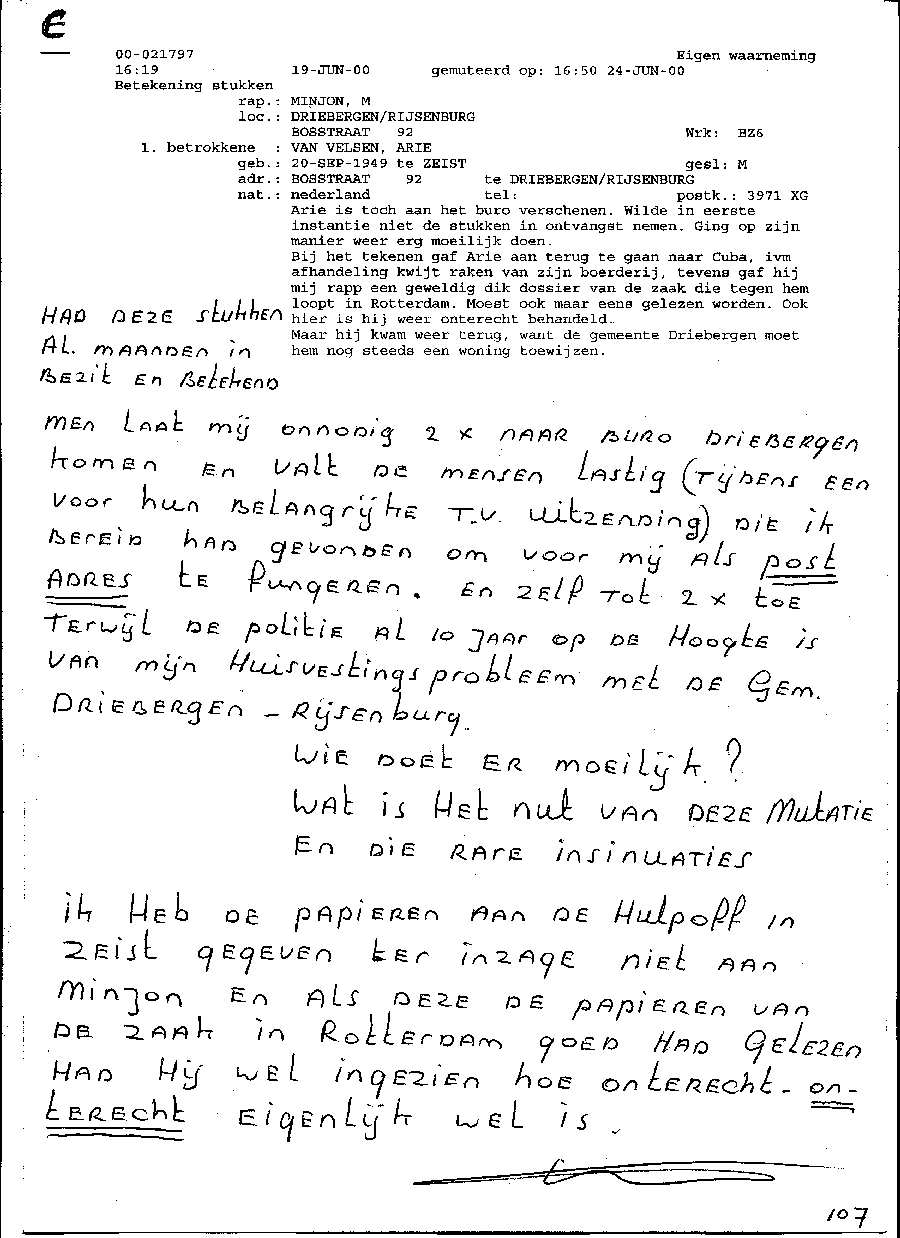 E
00-021797 Eigen waarneming
16:19 19-JUN-00 gemuteerd op: 16:50 24-JUN-00
Betekening stukken
rap.: MINJON, M
loc.: DRIEBERGEN/RIJSENBURG
BOSSTRAAT 92 Wrk: BZ6
1. betrokkene : VAN VELSEN, ARIE
geb.: 20-SEP-1949 te ZEIST gesl: M
adr.: BOSSTRAAT 92 te DRIEBERGEN/RIJSENBURG
nat.: nederland tel: postk.: 3971 XG
Arie is toch aan het buro verschenen. Wilde in eerste
instantie niet de stukken in ontvangst nemen. Ging op zijn
manier weer erg moeilijk doen.
Bij het tekenen gaf Arie aan terug te gaan naar Cuba, ivm
afhandeling kwijt raken van zijn boerderij, tevens gaf hij
mij rapp een geweldig dik dossier van de zaak die tegen hem
loopt in Rotterdam. Moest ook maar eens gelezen worden. Ook
hier is hij weer onterecht behandeld.
Maar hij kwam weer terug, want de gemeente Driebergen moet
hem nog steeds een woning toewijzen.
HAD DEZE stukken
AL. MAANDEN in
BEZit En BEtekEnD
MEn LAAt mij onnodig 2 x nAAR BURO DRiEBERgEn
komEn En VALt DE mEnsEn LAstig (TijDEns EEn
voor hun BELAngrijkE T.V. uitzEnDing) DiE ik
BErEiD hAD gEvonDEn om voor mij Als post
ADRES tE fungEREn. En zElf Tot 2 x toE
TErwijL DE politiE AL 10 jAAR op DE HoogtE is
VAn mijn HuisvEstings problEEm mEt DE GEm.
DRiEBERgEn - RijsEnburg.
WiE DoEt ER moEiLijk ?
WAt is HEt nut vAn DEZE MutATiE
En DiE RArE insinuATiEs
ik HEb DE pApiEREn AAn DE Hulpoff in
ZEist gEgEvEn tEr inzAgE niEt AAn
Minjon En ALs DEZE DE pApiEREn VAn
DE ZAAk in RottErDAm goED HAD GELEZEn
HAD Hij wEL ingEziEn hoE ontERECht- on-
tERECht EigEnLijk wEL is.
107